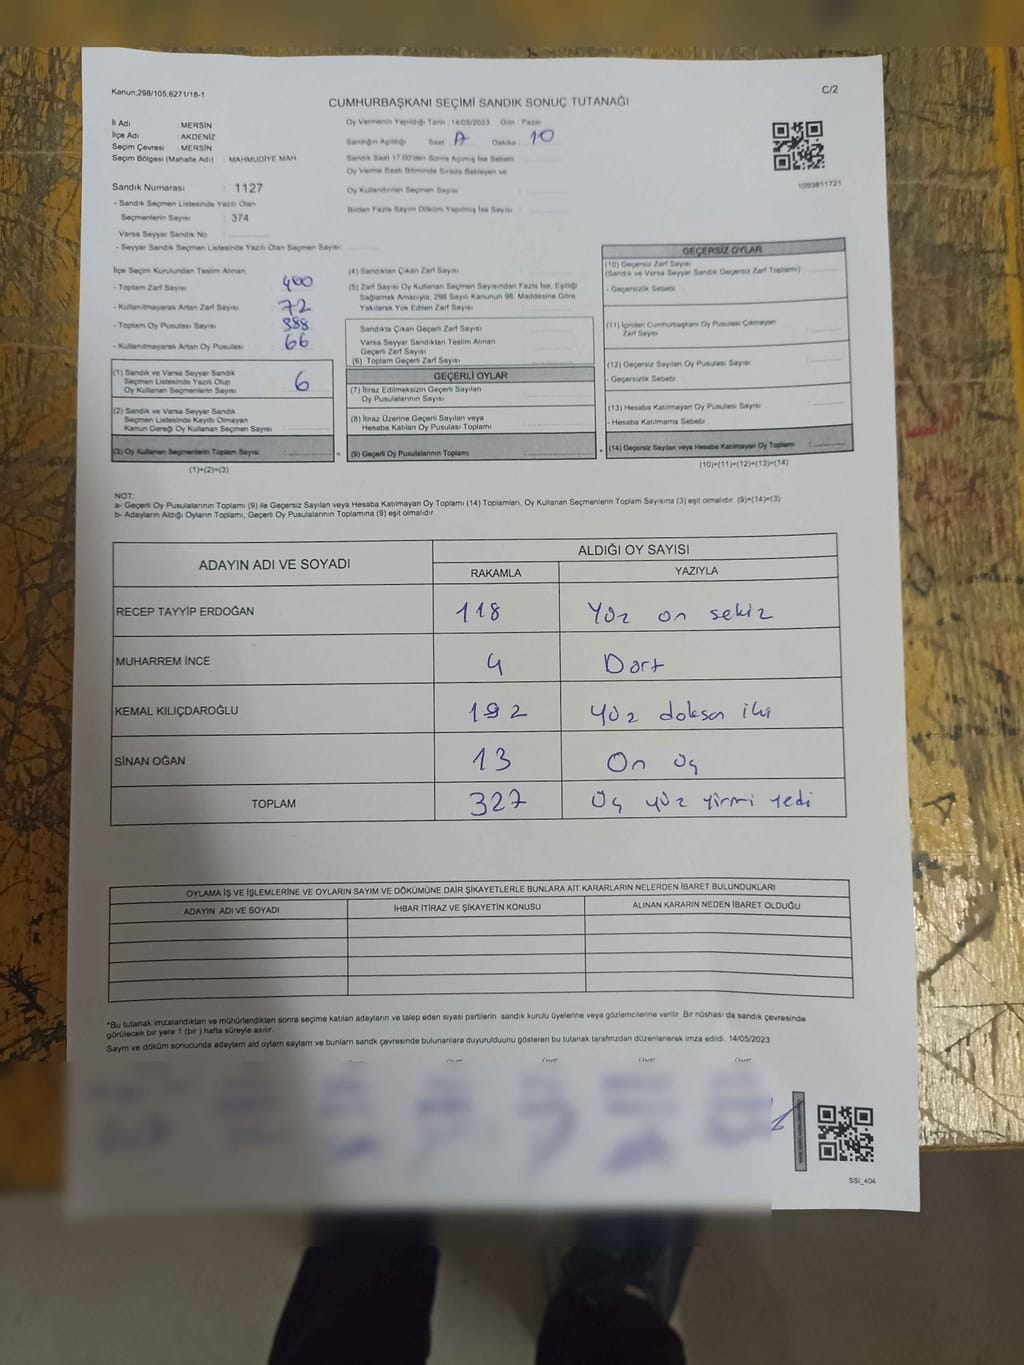 Kanun;298/105;6271/18-1
C/2
CUMHURBAŞKANI SEÇİMİ SANDIK SONUÇ TUTANAĞI
İl Adı : MERSİN
İlçe Adı : AKDENİZ
Seçim Çevresi : MERSİN
Seçim Bölgesi (Mahalle Adı) : MAHMUDİYE MAH.
Oy Vermenin Yapıldığı Tarih : 14/05/2023 Gün : Pazar
Sandığın Açıldığı Saat Dakika 10
Sandık Saat 17:00'den Sonra Açılmış İse Sebebi
Oy Verme Saati Bitiminde Sırada Bekleyen ve
Oy Kullandırılan Seçmen Sayısı
Birden Fazla Sayım Döküm Yapılmış İse Sayısı
1093811721
Sandık Numarası : 1127
- Sandık Seçmen Listesinde Yazılı Olan
Seçmenlerin Sayısı : 374
Varsa Seyyar Sandık No
- Seyyar Sandık Seçmen Listesinde Yazılı Olan Seçmen Sayısı:
İlçe Seçim Kurulundan Teslim Alınan;
- Toplam Zarf Sayısı 400
- Kullanılmayarak Artan Zarf Sayısı 72
- Toplam Oy Pusulası Sayısı 388
- Kullanılmayarak Artan Oy Pusulası 66
(1) Sandık ve Varsa Seyyar Sandık
Seçmen Listesinde Yazılı Olup
Oy Kullanan Seçmenlerin Sayısı : 6
(2) Sandık ve Varsa Seyyar Sandık
Seçmen Listesinde Kayıtlı Olmayan
Kanun Gereği Oy Kullanan Seçmen Sayısı :
(3) Oy Kullanan Seçmenlerin Toplam Sayısı :
(1)+(2)=(3)
(4) Sandıktan Çıkan Zarf Sayısı
(5) Zarf Sayısı Oy Kullanan Seçmen Sayısından Fazla İse, Eşitliği
Sağlamak Amacıyla; 298 Sayılı Kanunun 98. Maddesine Göre
Yakılarak Yok Edilen Zarf Sayısı
Sandıkta Çıkan Geçerli Zarf Sayısı
Varsa Seyyar Sandıktan Teslim Alınan
Geçerli Zarf Sayısı
(6) Toplam Geçerli Zarf Sayısı
GEÇERLİ OYLAR
(7) İtiraz Edilmeksizin Geçerli Sayılan
Oy Pusulalarının Sayısı
(8) İtiraz Üzerine Geçerli Sayılan veya
Hesaba Katılan Oy Pusulası Toplamı
(9) Geçerli Oy Pusulalarının Toplamı
GEÇERSİZ OYLAR
(10) Geçersiz Zarf Sayısı
(Sandık ve Varsa Seyyar Sandık Geçersiz Zarf Toplamı)
- Geçersizlik Sebebi
(11) İçinden Cumhurbaşkanı Oy Pusulası Çıkmayan
Zarf Sayısı
(12) Geçersiz Sayılan Oy Pusulası Sayısı
- Geçersizlik Sebebi
(13) Hesaba Katılmayan Oy Pusulası Sayısı
- Hesaba Katılmama Sebebi
(14) Geçersiz Sayılan veya Hesaba Katılmayan Oy Toplamı
(10)+(11)+(12)+(13)=(14)
NOT:
a- Geçerli Oy Pusulalarının Toplamı (9) ile Geçersiz Sayılan veya Hesaba Katılmayan Oy Toplamı (14) Toplamları, Oy Kullanan Seçmenlerin Toplam Sayısına (3) eşit olmalıdır. (9)+(14)=(3)
b- Adayların Aldığı Oyların Toplamı, Geçerli Oy Pusulalarının Toplamına (9) eşit olmalıdır.
ADAYIN ADI VE SOYADI
ALDIĞI OY SAYISI
RAKAMLA YAZIYLA
RECEP TAYYİP ERDOĞAN 118 Yüz on sekiz
MUHARREM İNCE 4 Dört
KEMAL KILIÇDAROĞLU 192 yüz doksan iki
SİNAN OĞAN 13 On üç
TOPLAM 327 üç yüz yirmi yedi
OYLAMA İŞ VE İŞLEMLERİNE VE OYLARIN SAYIM VE DÖKÜMÜNE DAİR ŞİKAYETLERLE BUNLARA AİT KARARLARIN NELERDEN İBARET BULUNDUKLARI
ADAYIN ADI VE SOYADI İHBAR İTİRAZ VE ŞİKAYETİN KONUSU ALINAN KARARIN NEDEN İBARET OLDUĞU
*Bu tutanak imzalandıktan ve mühürlendikten sonra seçime katılan adayların ve talep eden siyasi partilerin sandık kurulu üyelerine veya gözlemcilerine verilir. Bir nüshası da sandık çevresinde
görülecek bir yere 1 (bir) hafta süreyle asılır.
Sayım ve döküm sonucunda adayların ald oyların sayların ve bunların sandk çevresinde bulunanlara duyurulduunu gösteren bu tutanak tarafmzdan düzenlenerek imza edildi. 14/05/2023
SSI_404